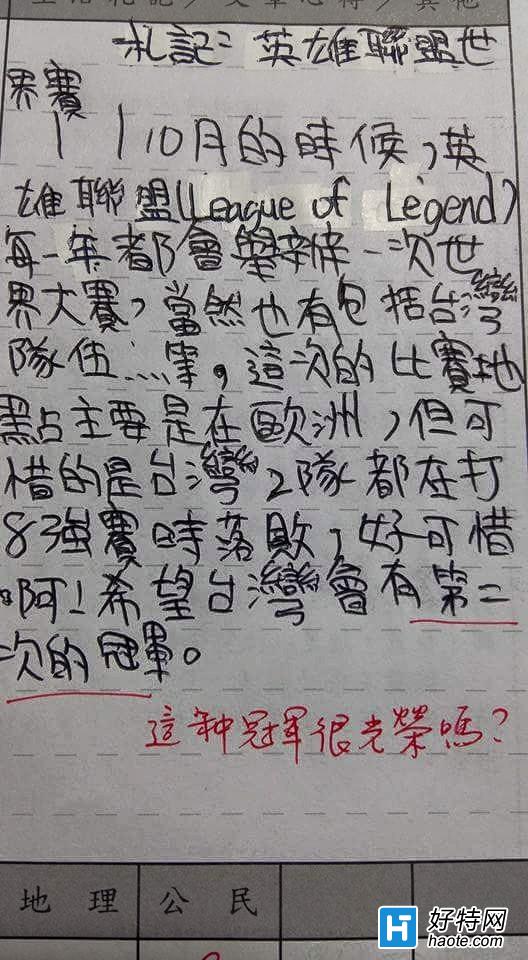 札記：英雄聯盟世
界賽
10月的時候，英
雄聯盟(League of Legend)
每一年都會舉辦一次世
界大賽，當然也有包括台灣
隊伍……等，這次的比賽地
點主要是在歐洲，但可
惜的是台灣2隊都在打
8強賽時落敗，好可惜
啊！希望台灣會有第二
次的冠軍。
這种冠军很光榮嗎？
地理 公民
好特网
haote.com